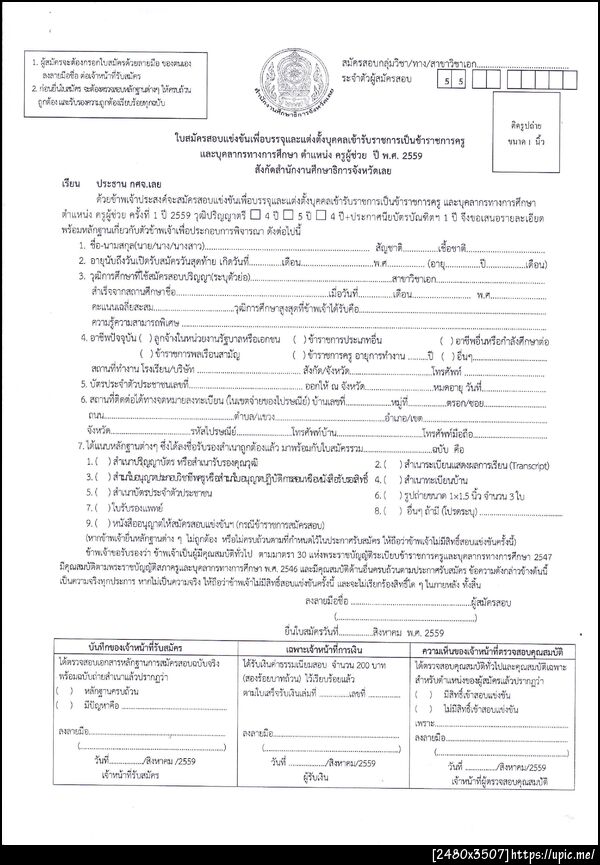 1. ผู้สมัครจะต้องกรอกใบสมัครด้วยลายมือ ของตนเอง
ลงลายมือชื่อ ต่อเจ้าหน้าที่รับสมัคร
2. ก่อนยื่นใบสมัคร จะต้องตรวจสอบหลักฐานต่างๆ ให้ครบถ้วน
ถูกต้อง และรับรองความถูกต้องเรียบร้อยทุกฉบับ
สำนักงานศึกษาธิการจังหวัดเลย
สมัครสอบกลุ่มวิชา/ทาง/สาขาวิชาเอก
ระจำตัวผู้สมัครสอบ 5 5
ติดรูปถ่าย
ขนาด 1 นิ้ว
ใบสมัครสอบแข่งขันเพื่อบรรจุและแต่งตั้งบุคคลเข้ารับราชการเป็นข้าราชการครู
และบุคลากรทางการศึกษา ตำแหน่ง ครูผู้ช่วย ปี พ.ศ. 2559
สังกัดสำนักงานศึกษาธิการจังหวัดเลย
เรียน ประธาน กศจ.เลย
ด้วยข้าพเจ้าประสงค์จะสมัครสอบแข่งขันเพื่อบรรจุและแต่งตั้งบุคคลเข้ารับราชการเป็นข้าราชการครู และบุคลากรทางการศึกษา
ตำแหน่ง ครูผู้ช่วย ครั้งที่ 1 ปี 2559 วุฒิปริญญาตรี 4 ปี 5 ปี 4 ปี+ประกาศนียบัตรบัณฑิตฯ 1 ปี จึงขอเสนอรายละเอียด
พร้อมหลักฐานเกี่ยวกับตัวข้าพเจ้าเพื่อประกอบการพิจารณา ดังต่อไปนี้
1. ชื่อ-นามสกุล(นาย/นาง/นางสาว)..........สัญชาติ..........เชื้อชาติ..........
2. อายุนับถึงวันเปิดรับสมัครวันสุดท้าย เกิดวันที่..........เดือน..........พ.ศ...........(อายุ..........ปี..........เดือน)
3. วุฒิการศึกษาที่ใช้สมัครสอบปริญญา(ระบุตัวย่อ)..........สาขาวิชาเอก..........
สำเร็จจากสถานศึกษาชื่อ..........เมื่อวันที่..........เดือน..........พ.ศ...........
คะแนนเฉลี่ยสะสม..........วุฒิการศึกษาสูงสุดที่ข้าพเจ้าได้รับคือ..........
ความรู้ความสามารถพิเศษ..........
4. อาชีพปัจจุบัน ( ) ลูกจ้างในหน่วยงานรัฐบาลหรือเอกชน ( ) ข้าราชการประเภทอื่น ( ) อาชีพอื่นหรือกำลังศึกษาต่อ
( ) ข้าราชการพลเรือนสามัญ ( ) ข้าราชการครู อายุการทำงาน ........ปี ( ) อื่นๆ..........
สถานที่ทำงาน โรงเรียน/บริษัท ..........สังกัด/จังหวัด..........โทรศัพท์ ..........
5. บัตรประจำตัวประชาชนเลขที่..........ออกให้ ณ จังหวัด..........หมดอายุ วันที่..........
6. สถานที่ติดต่อได้ทางจดหมายลงทะเบียน (ในเขตจ่ายของไปรษณีย์) บ้านเลขที่..........หมู่ที่..........ตรอก/ซอย..........
ถนน..........ตำบล/แขวง..........อำเภอ/เขต..........
จังหวัด..........รหัสไปรษณีย์..........โทรศัพท์บ้าน..........โทรศัพท์มือถือ..........
7. ได้แนบหลักฐานต่างๆ ซึ่งได้ลงชื่อรับรองสำเนาถูกต้องแล้ว มาพร้อมกับใบสมัครรวม..........ฉบับ คือ
1. ( ) สำเนาปริญญาบัตร หรือสำเนารับรองคุณวุฒิ 2. ( ) สำเนาระเบียนแสดงผลการเรียน (Transcript)
3. ( ) สำเนาใบอนุญาตประกอบวิชาชีพครูหรือสำเนาใบอนุญาตปฏิบัติการสอนหรือหนังสือรับรองสิทธิ์ 4. ( ) สำเนาทะเบียนบ้าน
5. ( ) สำเนาบัตรประจำตัวประชาชน 6. ( ) รูปถ่ายขนาด 1×1.5 นิ้ว จำนวน 3 ใบ
7. ( ) ใบรับรองแพทย์ 8. ( ) อื่นๆ ถ้ามี (โปรดระบุ)..........
9. ( ) หนังสืออนุญาตให้สมัครสอบแข่งขันฯ (กรณีข้าราชการสมัครสอบ)
(หากข้าพเจ้ายื่นหลักฐานต่าง ๆ ไม่ถูกต้อง หรือไม่ครบถ้วนตามที่กำหนดไว้ในประกาศรับสมัคร ให้ถือว่าข้าพเจ้าไม่มีสิทธิ์สอบแข่งขันครั้งนี้)
ข้าพเจ้าขอรับรองว่า ข้าพเจ้าเป็นผู้มีคุณสมบัติทั่วไป ตามมาตรา 30 แห่งพระราชบัญญัติระเบียบข้าราชการครูและบุคลากรทางการศึกษา 2547
มีคุณสมบัติตามพระราชบัญญัติสภาครูและบุคลากรทางการศึกษา พ.ศ. 2546 และมีคุณสมบัติด้านอื่นครบถ้วนตามประกาศรับสมัคร ข้อความดังกล่าวข้างต้นนี้
เป็นความจริงทุกประการ หากไม่เป็นความจริง ให้ถือว่าข้าพเจ้าไม่มีสิทธิ์สอบแข่งขันครั้งนี้ และจะไม่เรียกร้องสิทธิ์ใด ๆ ในภายหลัง ทั้งสิ้น
ลงลายมือชื่อ ..........ผู้สมัครสอบ
(..........)
ยื่นใบสมัครวันที่..........สิงหาคม พ.ศ. 2559
บันทึกของเจ้าหน้าที่รับสมัคร
ได้ตรวจสอบเอกสารหลักฐานการสมัครสอบฉบับจริง
พร้อมฉบับถ่ายสำเนาแล้วปรากฏว่า
( ) หลักฐานครบถ้วน
( ) มีปัญหาคือ ..........
ลงลายมือ..........
(..........)
วันที่ ........../สิงหาคม /2559
เจ้าหน้าที่รับสมัคร
เฉพาะเจ้าหน้าที่การเงิน
ได้รับเงินค่าธรรมเนียมสอบ จำนวน 200 บาท
(สองร้อยบาทถ้วน) ไว้เรียบร้อยแล้ว
ตามใบเสร็จรับเงินเล่มที่ ..........เลขที่ ..........
ลงลายมือ..........
(..........)
วันที่ ........../สิงหาคม/2559
ผู้รับเงิน
ความเห็นของเจ้าหน้าที่ตรวจสอบคุณสมบัติ
ได้ตรวจสอบคุณสมบัติทั่วไปและคุณสมบัติเฉพาะ
สำหรับตำแหน่งของผู้สมัครแล้วปรากฏว่า
( ) มีสิทธิ์เข้าสอบแข่งขัน
( ) ไม่มีสิทธิ์เข้าสอบแข่งขัน
เพราะ..........
ลงลายมือ..........
(..........)
วันที่ ........../สิงหาคม/2559
เจ้าหน้าที่ผู้ตรวจสอบคุณสมบัติ
[2480x3507]https://upic.me/